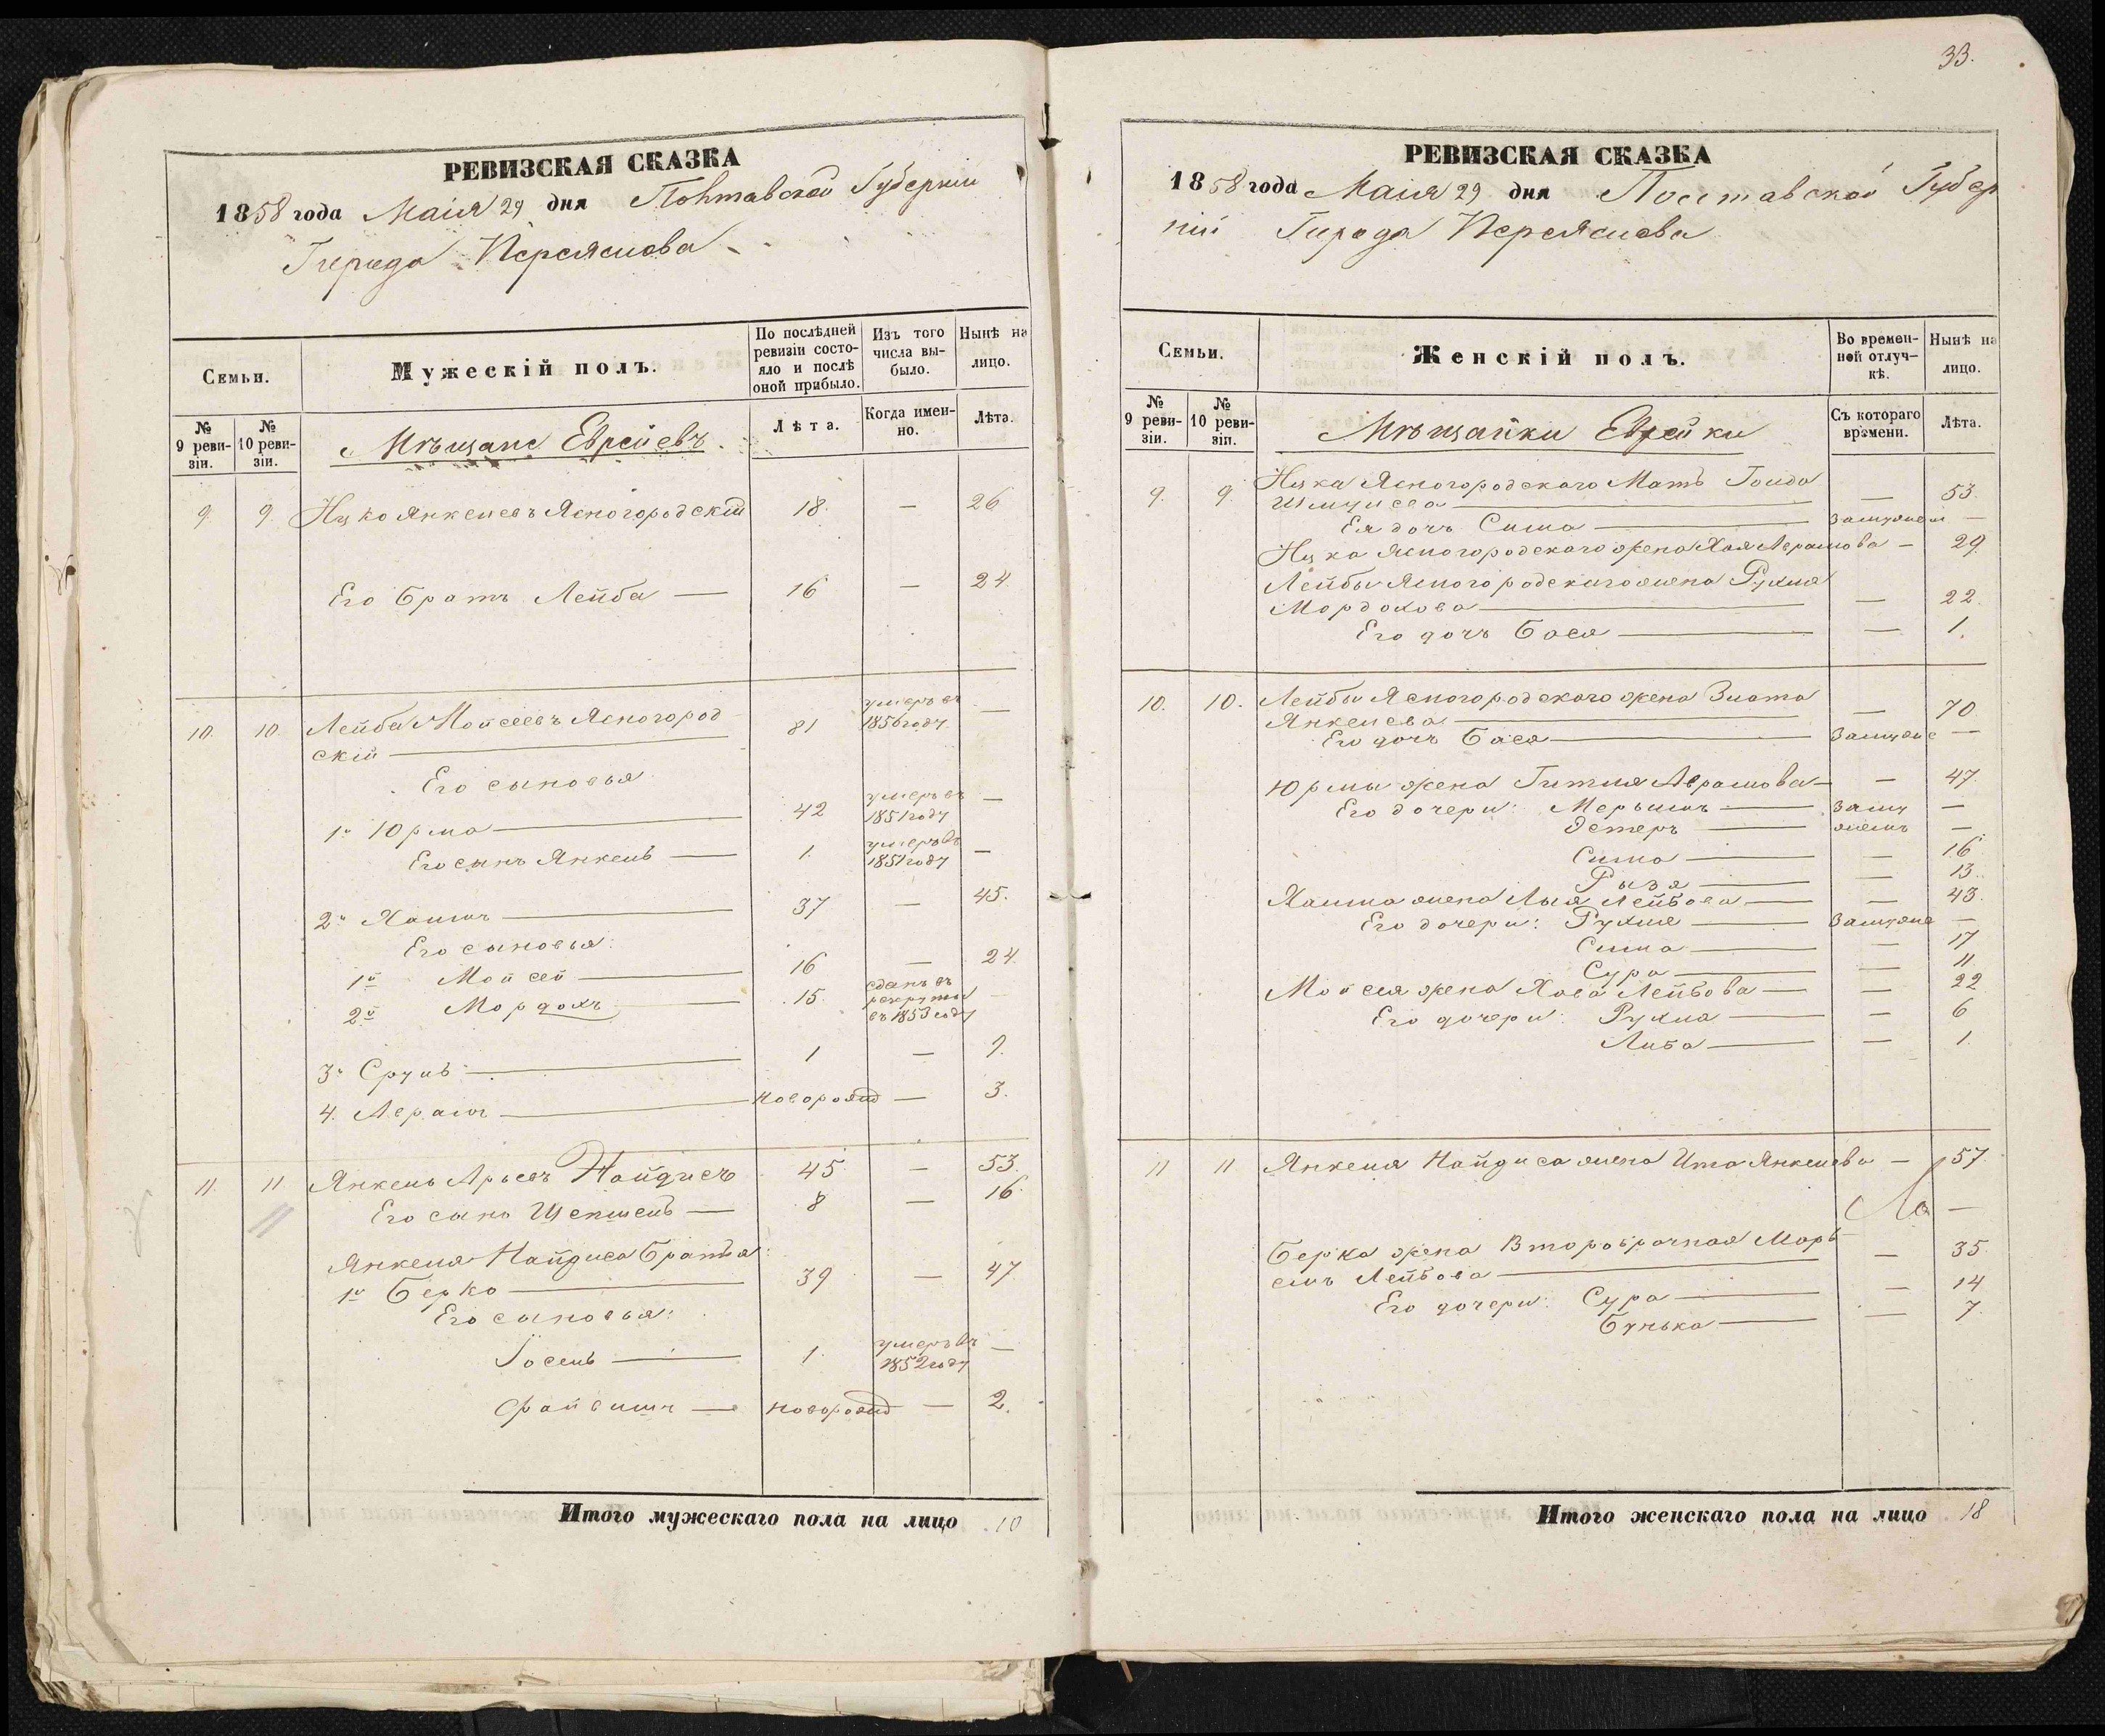 33.
РЕВИЗСКАЯ СКАЗКА
1858 года Маія 29 дня Полтавской Губерніи
Города Переяслова
Семьи.
Мужескій полъ.
По послѣдней ревизіи состояло и послѣ оной прибыло.
Изъ того числа выбыло.
Нынѣ на лицо.
№ 9 ревизіи.
№ 10 ревизіи.
Мѣщане Евреевъ
Лѣта.
Когда именно.
Лѣта.
9. 9. Ицко Янкелевъ Ясногородскій 18. — 26
Его Братъ Лейба — 16 — 24
10. 10. Лейба Мойсеевъ Ясногород 81 умеръ въ 1856 году —
скій —
Его сыновья
1й Юрма — 42 умеръ въ 1851 году —
Его сынъ Янкель — 1. умеръ въ 1851 году —
2й Хаимъ — 37 — 45.
Его сыновья:
1й Мойсей — 16 — 24
2й Мордохъ — 15. сданъ въ рекруты въ 1853 году
3й Сруль — 1 — 9.
4. Аврамъ — новорожд — 3.
11. 11 Янкель Арьевъ Найдисъ 45 — 53.
Его сынъ Шепшель — 8 — 16.
Янкеля Найдиса Братья:
1й Берко — 39 — 47
Его сыновья:
Іосель — 1. умеръ въ 1852 году —
Файвишъ — новорожд — 2.
Итого мужескаго пола на лицо 10
РЕВИЗСКАЯ СКАЗКА
1858 года Маія 29 дня Полтавской Губер
ніи Города Переяслова
Семьи.
Женскій полъ.
Во временной отлучкѣ.
Нынѣ на лицо.
№ 9 ревизіи.
№ 10 ревизіи.
Мѣщанки Еврейки
Съ котораго времени.
Лѣта.
9. 9. Ицка Ясногородского Мать Голда
Шмулева — — 53.
Ея дочь Сима — замужем —
Ицка Ясногородского жена Хая Аврамова — 29.
Лейбы Ясногородского жена Рухля
Мордохова — — 22.
Его дочь Бася — — 1.
10. 10. Лейбы Ясногородского жена Злата
Янкелева — — 70
Его дочь Бася — Замуже —
Юрмы жена Гитля Аврамова — — 47.
Его дочери: Мерьимъ — Заму —
Эстеръ — жемъ —
Сима — — 16
Рызя — — 13.
Хаима жена Лейбова — — 43
Его дочери: Рухля — Замуже —
Сима — — 17
Сура — — 11
Мойсея жена Хава Лейбова — — 22
Его дочери: Рухля — — 6
Либа — — 1.
11 11 Янкеля Найдиса жена Ита Янкелева — 57.
Берка жена Второбрачная Марь
емъ Лейбова — — 35
Его дочери: Сура — — 14
Бунька — — 7.
Итого женскаго пола на лицо 18